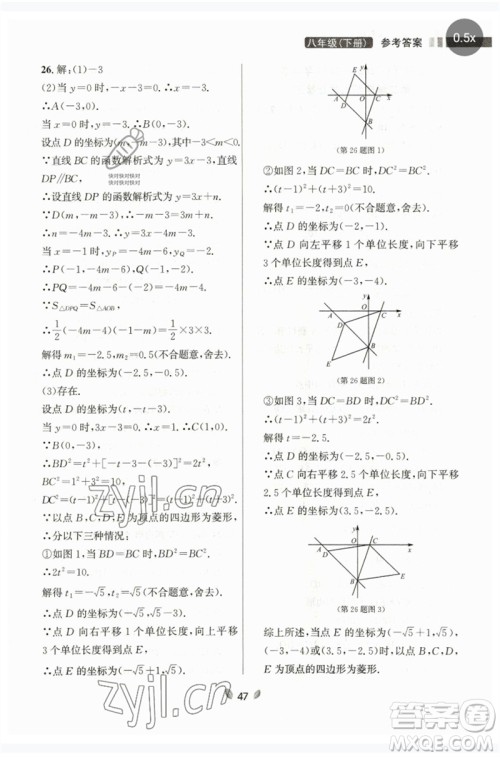 八年级(下册) 参考答案
0.5x
26. 解:(1)-3
(2)当 y=0 时,-x-3=0,x=-3.
∴A(-3,0).
设点 D 的坐标为(m,-m-3),-3<m<0.
∵直线 BC 的函数解析式为 y=3x-3,直线
DP∥BC,
∴设直线 DP 的函数解析式为 y=3x+n.
∵D(m,-m-3),
∴n=-4m-3.
当 x=0 时,y=-4m-3.
当 x=-1 时,y_P=-4m-6,y_Q=-2.
∴P(-1,-4m-6),Q(-1,-2).
∴PQ=-4m-6+2=-4m-4.
∵S△DPQ=S△AOB,
解得 m₁=-2.5,m₂=0.5(不合题意,舍去).
∴点 D 的坐标为(-2.5,-0.5).
(3)存在.
设点 D 的坐标为(t,-t-3).
∵B(0,-3),C(1,0),
∴BD²=t²+[-t-3-(-3)]²=2t²,
BC²=1²+3²=10,
DC²=(t-1)²+(-t-3)²=(t-1)²+(t+3)².
∵以点 B,C,D,E 为顶点的四边形为菱形,
∴分以下三种情况:
①如图 1,当 BD=BC 时,BD²=BC².
∴2t²=10.
解得 t₁=-√5,t₂=√5(不合题意,舍去).
∴点 D 的坐标为(-√5,√5-3).
∴点 D 向右平移 1 个单位长度,再向上平移
3 个单位长度得到点 E.
∴点 E 的坐标为(-√5+1,√5).
(第 26 题图 1)
②如图 2,当 DC=BC 时,DC²=BC².
∴(t-1)²+(t+3)²=10.
解得 t₁=-2,t₂=0(不合题意,舍去).
∴点 D 的坐标为(-2,-1).
∴点 D 向左平移 1 个单位长度,再向下平移
3 个单位长度得到点 E.
∴点 E 的坐标为(-3,-4).
(第 26 题图 2)
③如图 3,当 DC=BD 时,DC²=BD².
∴(t-1)²+(t+3)²=2t².
解得 t=-2.5.
∴点 D 的坐标为(-2.5,-0.5).
∴点 C 向右平移 2.5 个单位长度,再向下平移
2.5 个单位长度得到点 E.
∴点 E 的坐标为(3.5,-2.5).
(第 26 题图 3)
综上所述,当点 E 的坐标为(-√5+1,√5),
(-3,-4)或(3.5,-2.5)时,以点 B,C,D,
E 为顶点的四边形为菱形.
47
zyjl.cn